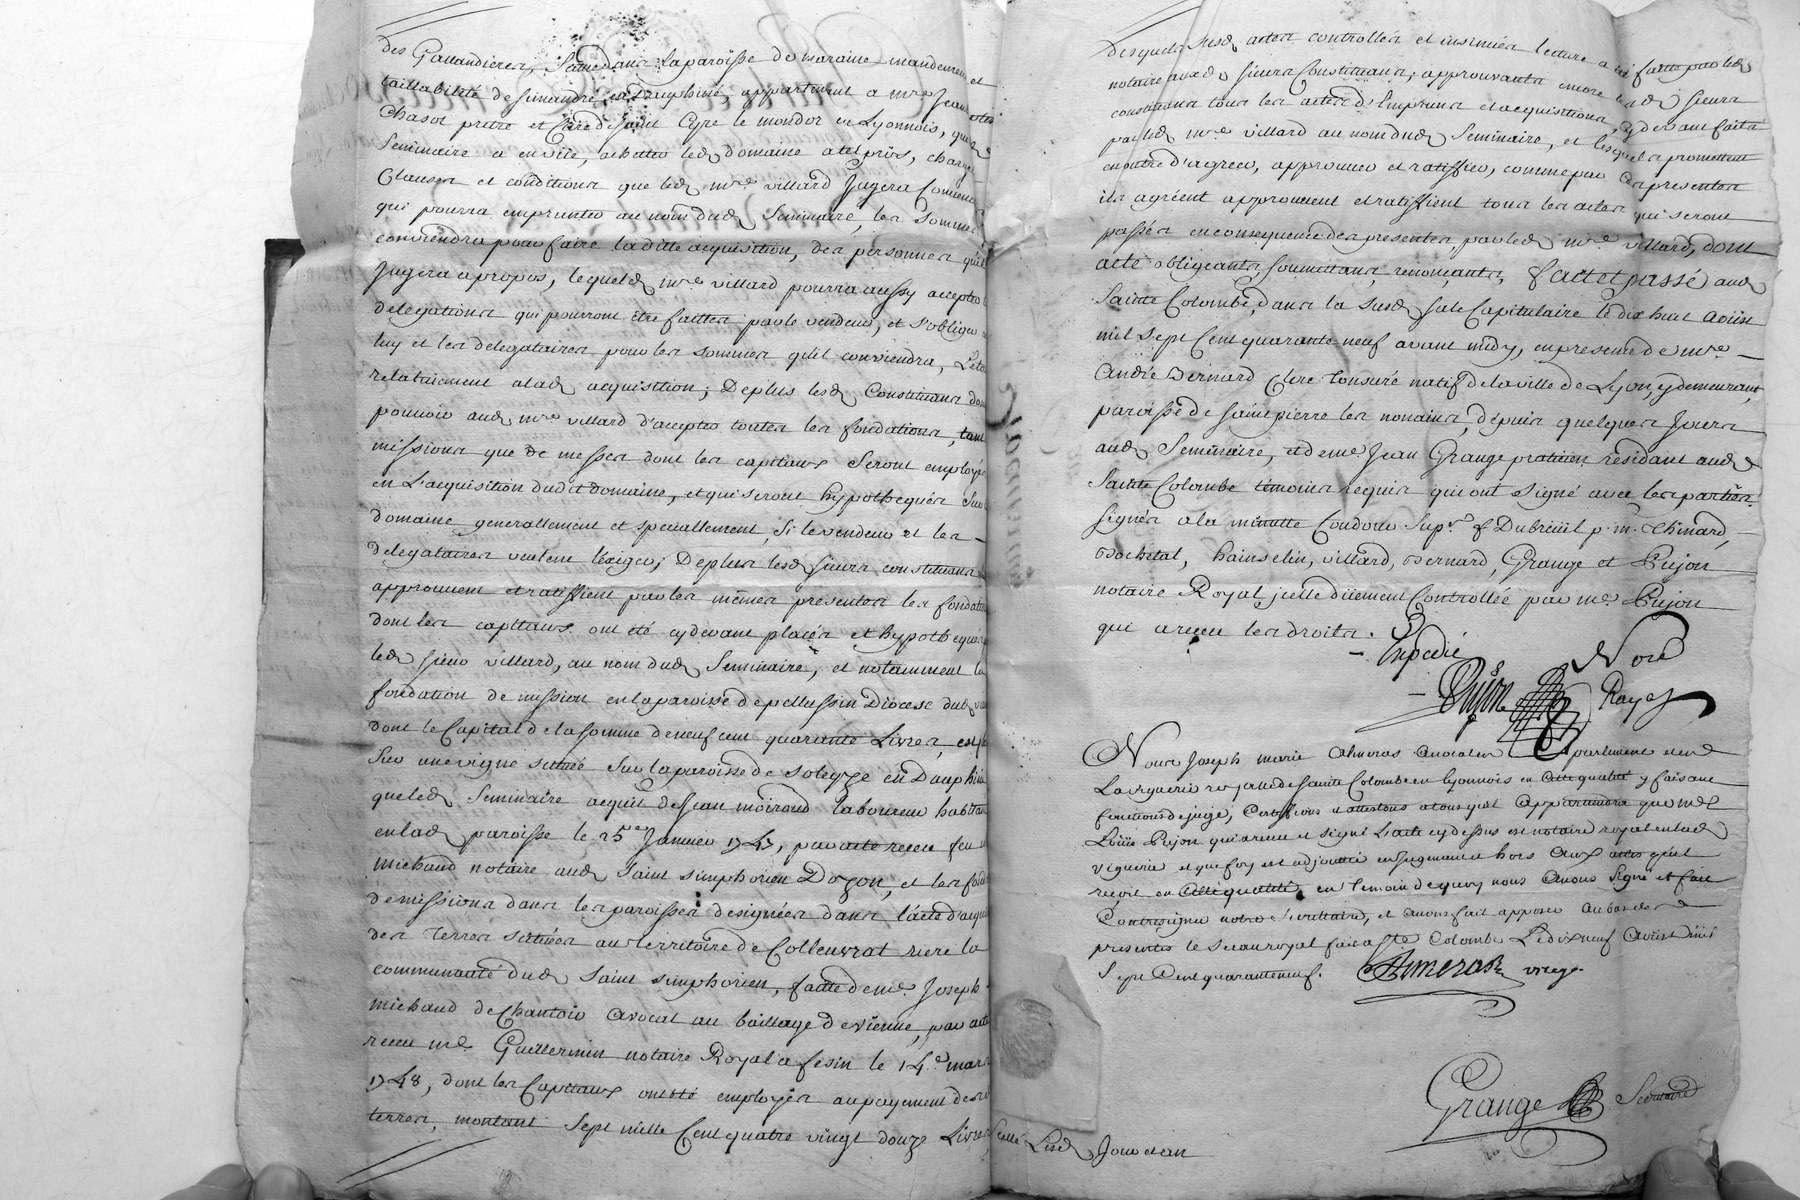 des Gallandieres, Scitué dans la paroisse de maraine mandement et
taillabilité de simandre en Dauphiné, appartenant a mre Jean
Chasot prêtre et Curé de saint Cyre le mondor en Lyonnois, que led
Seminaire a en vüe, achetter led domaine a tel prix, charges
Clauses et conditions que led mre villard Jugera Convenable
qui pourra emprunter au nom dud Seminaire, les sommes
conviendra pour faire laditte acquisition, des personnes qu'il
Jugera a propos, lequel mre villard pourra aussy accepter les
delegations qui pourront être faittes par le vendeur, et s'obliger
luy et les delegataires pour les sommes qu'il conviendra,
relativement a lad acquisition; De plus lesd Constituans donnent
pouvoir aud mre villard d'accepter touttes les fondations, tant
missions que de messes dont les capitaux seront employés
en L'acquisition dudit domaine, et qui seront hypothequés sur
domaine generallement et speciallement, si le vendeur et les
delegataires veulent l'exiger; De plus lesd sieurs constituans
approuvent et ratiffient par les mêmes presentes les fondations
dont les capitaux ont été cy devant placés et hypothequés
led sieur villard, au nom dud Seminaire, et notamment la
fondation de mission en la paroisse de pellussin Diocese dud
dont le Capital de la somme de neuf cent quarante Livres, est
sur une vigne scituée sur la paroisse de Soleyze en Dauphiné
que led Seminaire acquit de Jean moiroud laboureur habitant
en lad paroisse le 25e Janvier 1747, par acte receu feu me
michaud notaire aud Saint simphorien Dozon, et les fondations
de missions dans les paroisses designées dans l'acte d'acquisition
des terres scituées au territoire de Colleuvrat riere la
communauté dud saint simphorien, faitte de me Joseph
michaud de Chantoir avocat au bailliage de vienne, par acte
receu me Guillermin notaire Royal a fesin le 14e mars
1748, dont les Capitaux ont été employés au payement desd
terres, montant sept mille Cent quatre vingt douze Livres
desquels susd actes controllés et insinués lecture a été faitte par led
notaire auxd sieurs Constituans, approuvants encore lesd sieurs
constituans tous les actes d'Emprunt et acquisitions cy devant faits
par led mre villard au nom dud Seminaire, et lesquels promettent
en outre d'agréer, approuver et ratiffier, comme par ces presentes
ils agréent approuvent et ratiffient tous les actes qui seront
passés en consequence des presentes, par led mre villard, dont
acte obligeants, soumettans, renonçants, fait et passé aud
Sainte Colombe, dans la susd sale Capitulaire le dix huit Aoust
mil sept Cent quarante neuf avant midy, en presence de mre
André Bernard Clerc tonsuré natif de la ville de Lyon, y demeurant,
paroisse de saint pierre les nonains, depuis quelques jours
aud Seminaire, et de me Jean Grange praticien residant aud
Sainte Colombe temoins requis qui ont signé avec les parties
signés a la minutte Coudour Supr f Dubreüil p. m. Chinard,
Bochetal, hainselin, villard, Bernard, Grange et Pujon
notaire Royal, icelle düement Controllée par me Pujon
qui a receu les droits.
Expedié
Pujon Nore
Royal
Nous Joseph marie Almeras avocat en parlement
La viguerie royalle de sainte Colombe en lyonnois en cette qualité y faisant
fonctions de juge, Certiffions et attestons a tous qu'il appartiendra que me
Loüis Pujon qui a receu et signé l'acte cy dessus est notaire royal en lad
viguerie et que foy est adjoutée en jugement et hors aux actes qu'il
reçoit en cette qualité, en temoin de quoy nous avons signé et fait
Contresigner notre secretaire, et avons fait apposer au bas des
presentes le sceau royal fait a Ste Colombe Le dix neuf Aoust mil
Sept Cent quarante neuf. Almeras viregr
Grange Secretaire
Scellé Lesd Jour et an